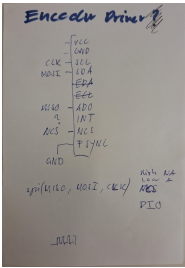 Encoder Driver ?
VCC
GND
CLK SCL
MOSI SDA
EDA
ECL
MISO ADO
? INT
NCS NCS
FSYNC
GND
spi(MISO, MOSI, CLK)
High NA
Low A
NCS
DIO